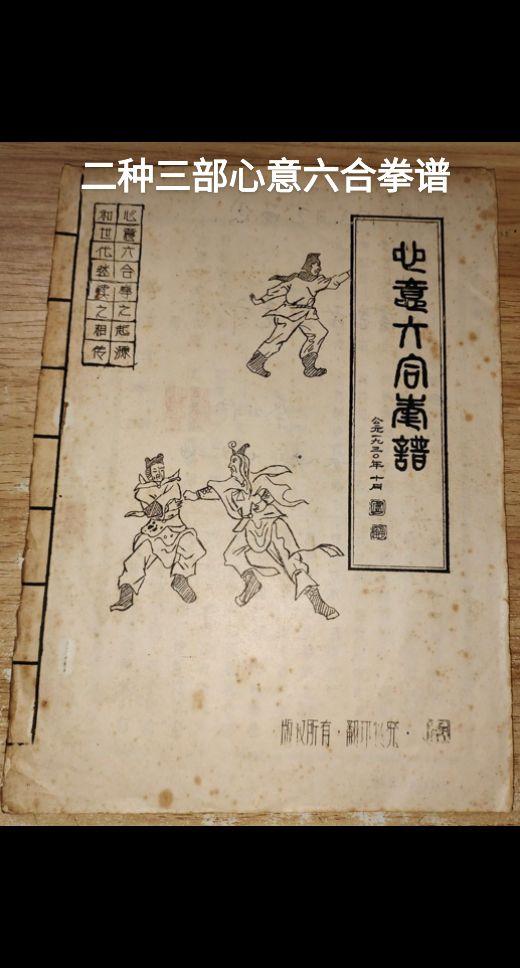 二种三部心意六合拳谱
心意六合拳之起源
和世代延续之相传
心意六合拳譜
公元一九三〇年十月
版权所有·翻印必究·